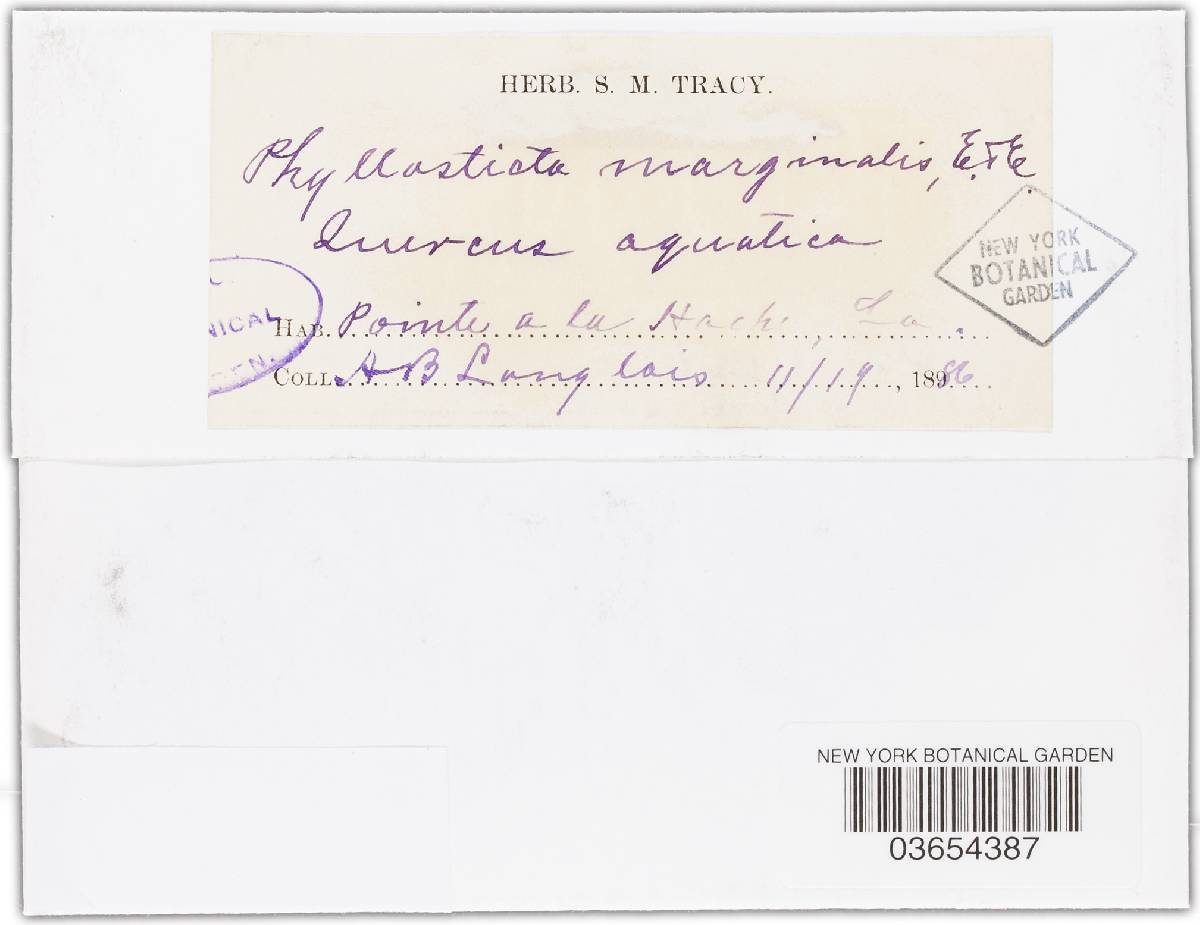 HERB. S. M. TRACY.
Phyllosticta marginalis, E. & E.
Quercus aquatica
NEW YORK
BOTANICAL
GARDEN
NICAL
DEN.
HAB. Pointe a la Hache, La.
COLL. A B Langlois 11/19, 1886
NEW YORK BOTANICAL GARDEN
03654387